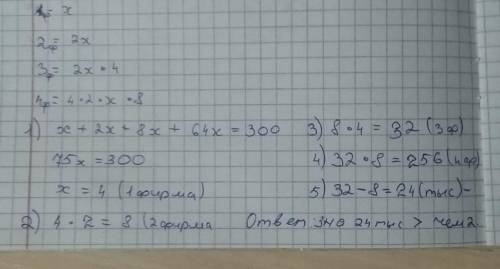 1ф= x
2ф= 2x
3ф= 2x · 4
4ф= 4 · 2 · x · 8
1) x + 2x + 8x + 64x = 300
75x = 300
x = 4 (1 фирма)
2) 4 · 2 = 8 (2 фирма
3) 8 · 4 = 32 (3 ф)
4) 32 · 8 = 256 (4 ф)
5) 32 - 8 = 24 (тыс) -
Ответ на 24 тыс > чем 2